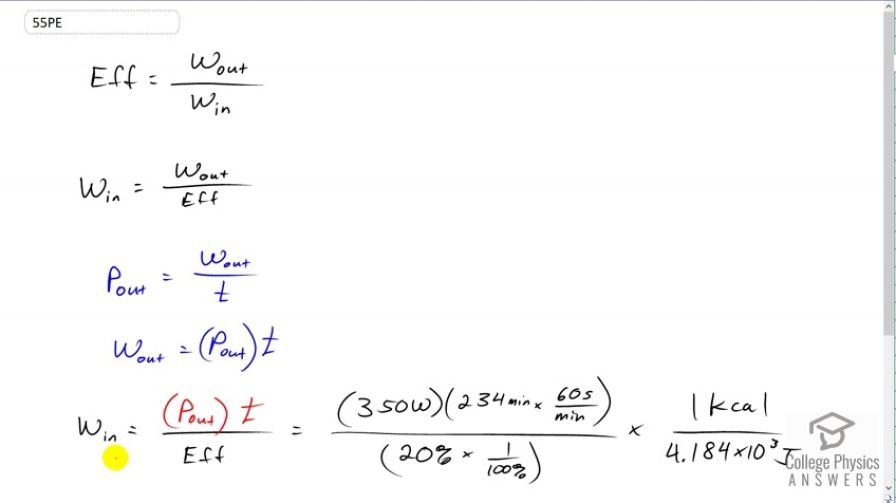 55PE
Eff = Wout / Win
Win = Wout / Eff
Pout = Wout / t
Wout = (Pout) t
Win = (Pout) t / Eff = (350W)(234 min × 60s / min) / (20% × 1 / 100%) × 1 kcal / 4.184 × 10³ J
College Physics
ANSWERS